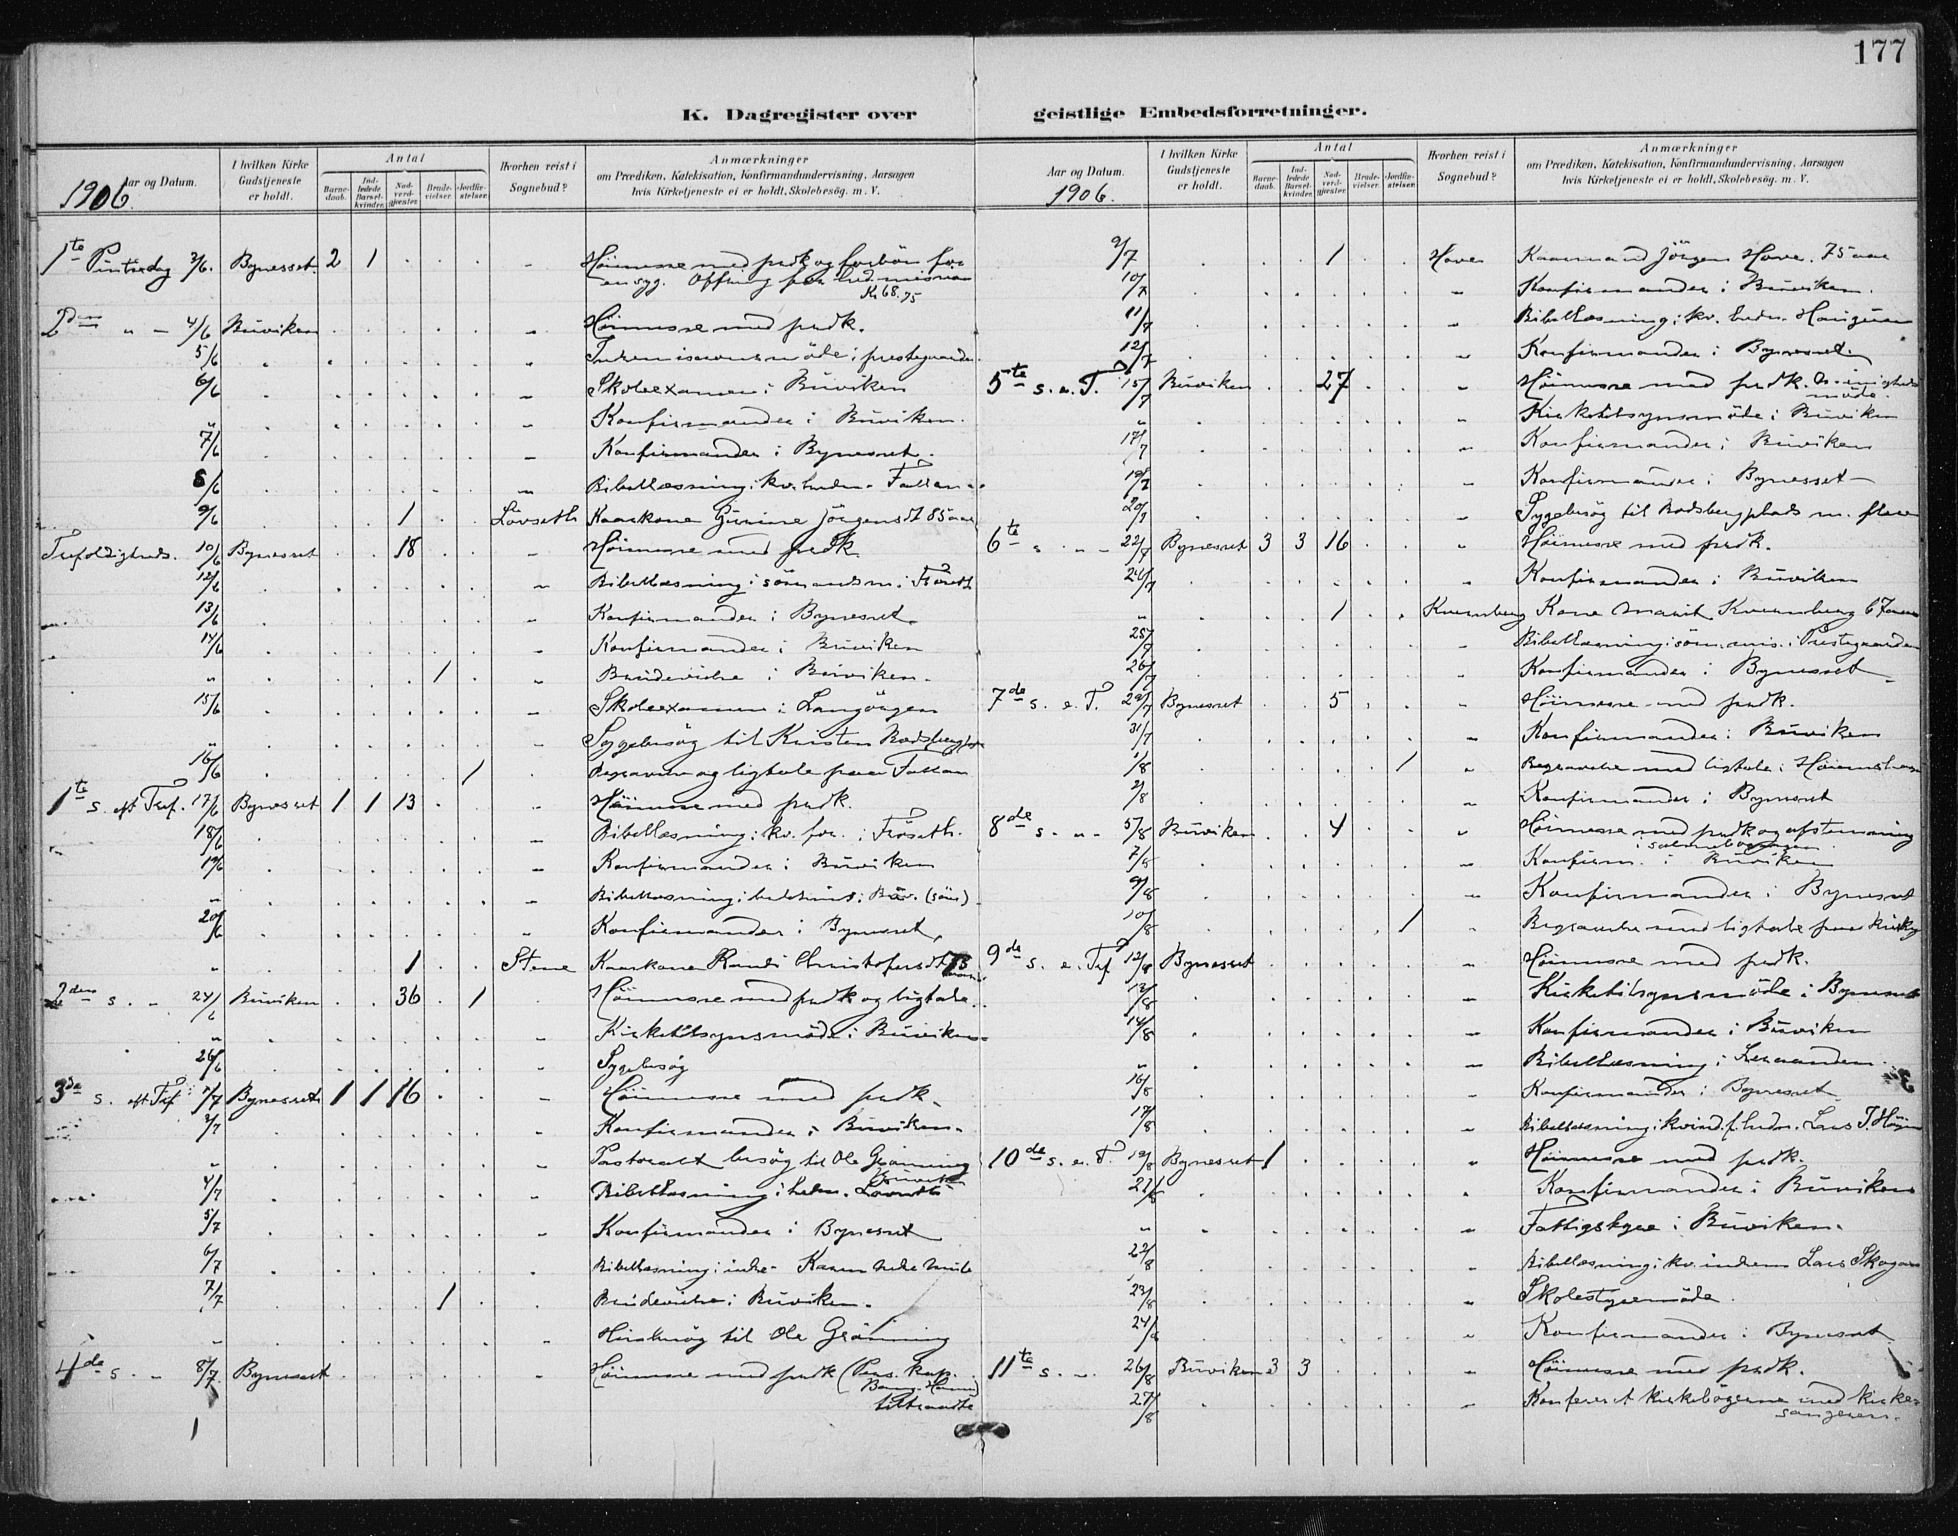 177
K. Dagregister over geistlige Embedsforretninger.
Aar og Datum.
1906.
I hvilken Kirke Gudstjeneste er holdt.
Antal
Barne-daab.
Ind-ledede Barsel-kvinder.
Nad-verd-gjæster.
Brude-vielser.
Jordfæ-stelser.
Hvorhen reist i Sognebud?
Anmærkninger
om Prædiken, Katekisation, Konfirmandundervisning, Aarsagen
hvis Kirketjeneste ei er holdt, Skolebesøg. m. V.
1te Pintsedag 3/6. Bynesset 2 1 Høimesse med prdk og forbön for
en syg. Offring for hedmission
Kr 68.75
2den " - 4/6 Buviken Høimesse med prdk.
5/6 Indremissionsmöde i prestegaarden.
6/6 Skoleexamen i Buviken
" Konfirmander i Buviken.
7/6 Konfirmander i Bynesset.
8/6 Bibellæsning i kv. hedn.
9/6 1 Lövseth Kaarkone Gurine Jörgensdt 85 aar
Trefoldigheds. 10/6 Bynesset 18 Høimesse med prdk
12/6 Bibellæsning i sömandsm. i Fröseth
13/6 Konfirmander i Bynesset.
14/6 Konfirmander i Buviken
" 1 Brudevielse i Buviken.
15/6 Skoleexamen i Langörgen
" Sygebesög til Kirsten
16/6 1 Begravelse og ligtale paa
1te s. eft Tref. 17/6 Bynesset 1 1 13 Høimesse med prdk.
18/6 Bibellæsning i kv. for. i Fröseth.
19/6 Konfirmander i Buviken
" Bibellæsning i bedehuset i Buv. (söm)
20/6 Konfirmander i Bynesset.
" 1 Stene Kaarkone Randi Christofersdt
2den s. " 24/6 Buviken 36 1 Høimesse med prdk og ligtale.
" Kirketilsynsmöde i Buviken
26/6 Sygebesög
3de s. eft Tref. 1/7 Bynesset 1 1 16 Høimesse med prdk.
3/7 Konfirmander i Buviken.
" Pastoralt besög til Ole Gräning
Buviken
4/7 Bibellæsning i hedn.
5/7 Konfirmander i Bynesset
6/7 Bibellæsning i indre-
7/7 1 Brudevielse i Buviken.
" Husbesög til Ole Gräning
4de s. " 8/7 Bynesset Høimesse med prdk (Pers. kap.
tiltraadte
Aar og Datum.
1906.
I hvilken Kirke Gudstjeneste er holdt.
Antal
Barne-daab.
Ind-ledede Barsel-kvinder.
Nad-verd-gjæster.
Brude-vielser.
Jordfæ-stelser.
Hvorhen reist i Sognebud?
Anmærkninger
om Prædiken, Katekisation, Konfirmandundervisning, Aarsagen
hvis Kirketjeneste ei er holdt, Skolebesøg. m. V.
9/7 1 Hove Kaarmand Jörgen Hove. 75 aar
10/7 Konfirmander i Buviken.
11/7 Bibellæsning i kv. hedn.
12/7 Konfirmander i Bynesset
5te s. e. T. 15/7 Buviken 27 Høimesse med prdk.
möde.
" Kirketilsynsmöde i Buviken
17/7 Konfirmander i Buviken
19/7 Konfirmander i Bynesset
20/7 Sygebesög til Rodsbergplads m. flere
6te s. " - 22/7 Bynesset 3 3 16 Høimesse med prdk.
24/7 Konfirmander i Buviken
" 1 Kvernberg Kone Marit Kvernberg 67 aar
25/7 Bibellæsning i söm. mis. i Prestegaarden
26/7 Konfirmander i Bynesset
7de s. e. T. 29/7 Bynesset 5 Høimesse med prdk.
31/7 Konfirmander i Buviken
1/8 1 Begravelse med ligtale i
2/8 Konfirmander i Bynesset
8de s. " - 5/8 Buviken 4 Høimesse med prdk og afstemning
i salmebogsagen
7/8 Konfirm. i Buviken
9/8 Konfirmander i Bynesset
10/8 1 Begravelse med ligtale paa
9de s. e. Tref 12/8 Bynesset Høimesse med prdk.
13/8 Kirketilsynsmöde i Bynesset
14/8 Konfirmander i Buviken
" Bibellæsning i Leraanden
16/8 Konfirmander i Bynesset
17/8 Bibellæsning i kvind. f. hedn. Lars T.
10de s. e. T. 19/8 Bynesset 1 Høimesse med prdk.
21/8 Konfirmander i Buviken
" Fattigstyre i Buviken.
22/8 Bibellæsning i kv. indrem Lars
23/8 Skolestyremöde
24/8 Konfirmander i Bynesset
11te s. " 26/8 Buviken 3 3 Høimesse med prdk.
27/8 Konfereret kirkebögerne med kirke-
sangeren.